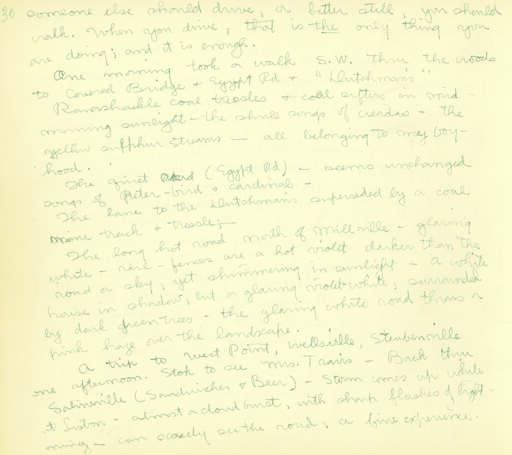 30 someone else should drive, or better still, you should
walk. When you drive, that is the only thing you
are doing; and it is enough.
One morning took a walk S.W. thru the woods
to Covered Bridge & Egypt Rd & "Dutchmans"
Ramshackle coal trestles & coal sifters in mid-
morning sunlight - the shrill songs of cicadas - the
yellow sulphur streams - all belonging to my boy-
hood.
The quiet road (Egypt Rd) - seems unchanged
songs of Peter-bird & cardinal -
The lane to the Dutchmans superseded by a coal
mine track & trestle; -
The long hot road north of Millville - glaring
white - rail-fences are a hot violet darker than the
road or sky, yet shimmering in sunlight - a white
house in shadow, but a glaring violet-white, surrounded
by dark green trees - the glaring white road throws a
pink haze over the landscape.
A trip to West Point, Wellsville, Steubenville
one afternoon. Stop to see Mrs. Travis - Back thru
Salineville (Sandwiches & Beer) - Storm comes up while
at Lisbon - almost a cloud burst, with sharp flashes of light-
ning - can scarcely see the road; a fine experience.